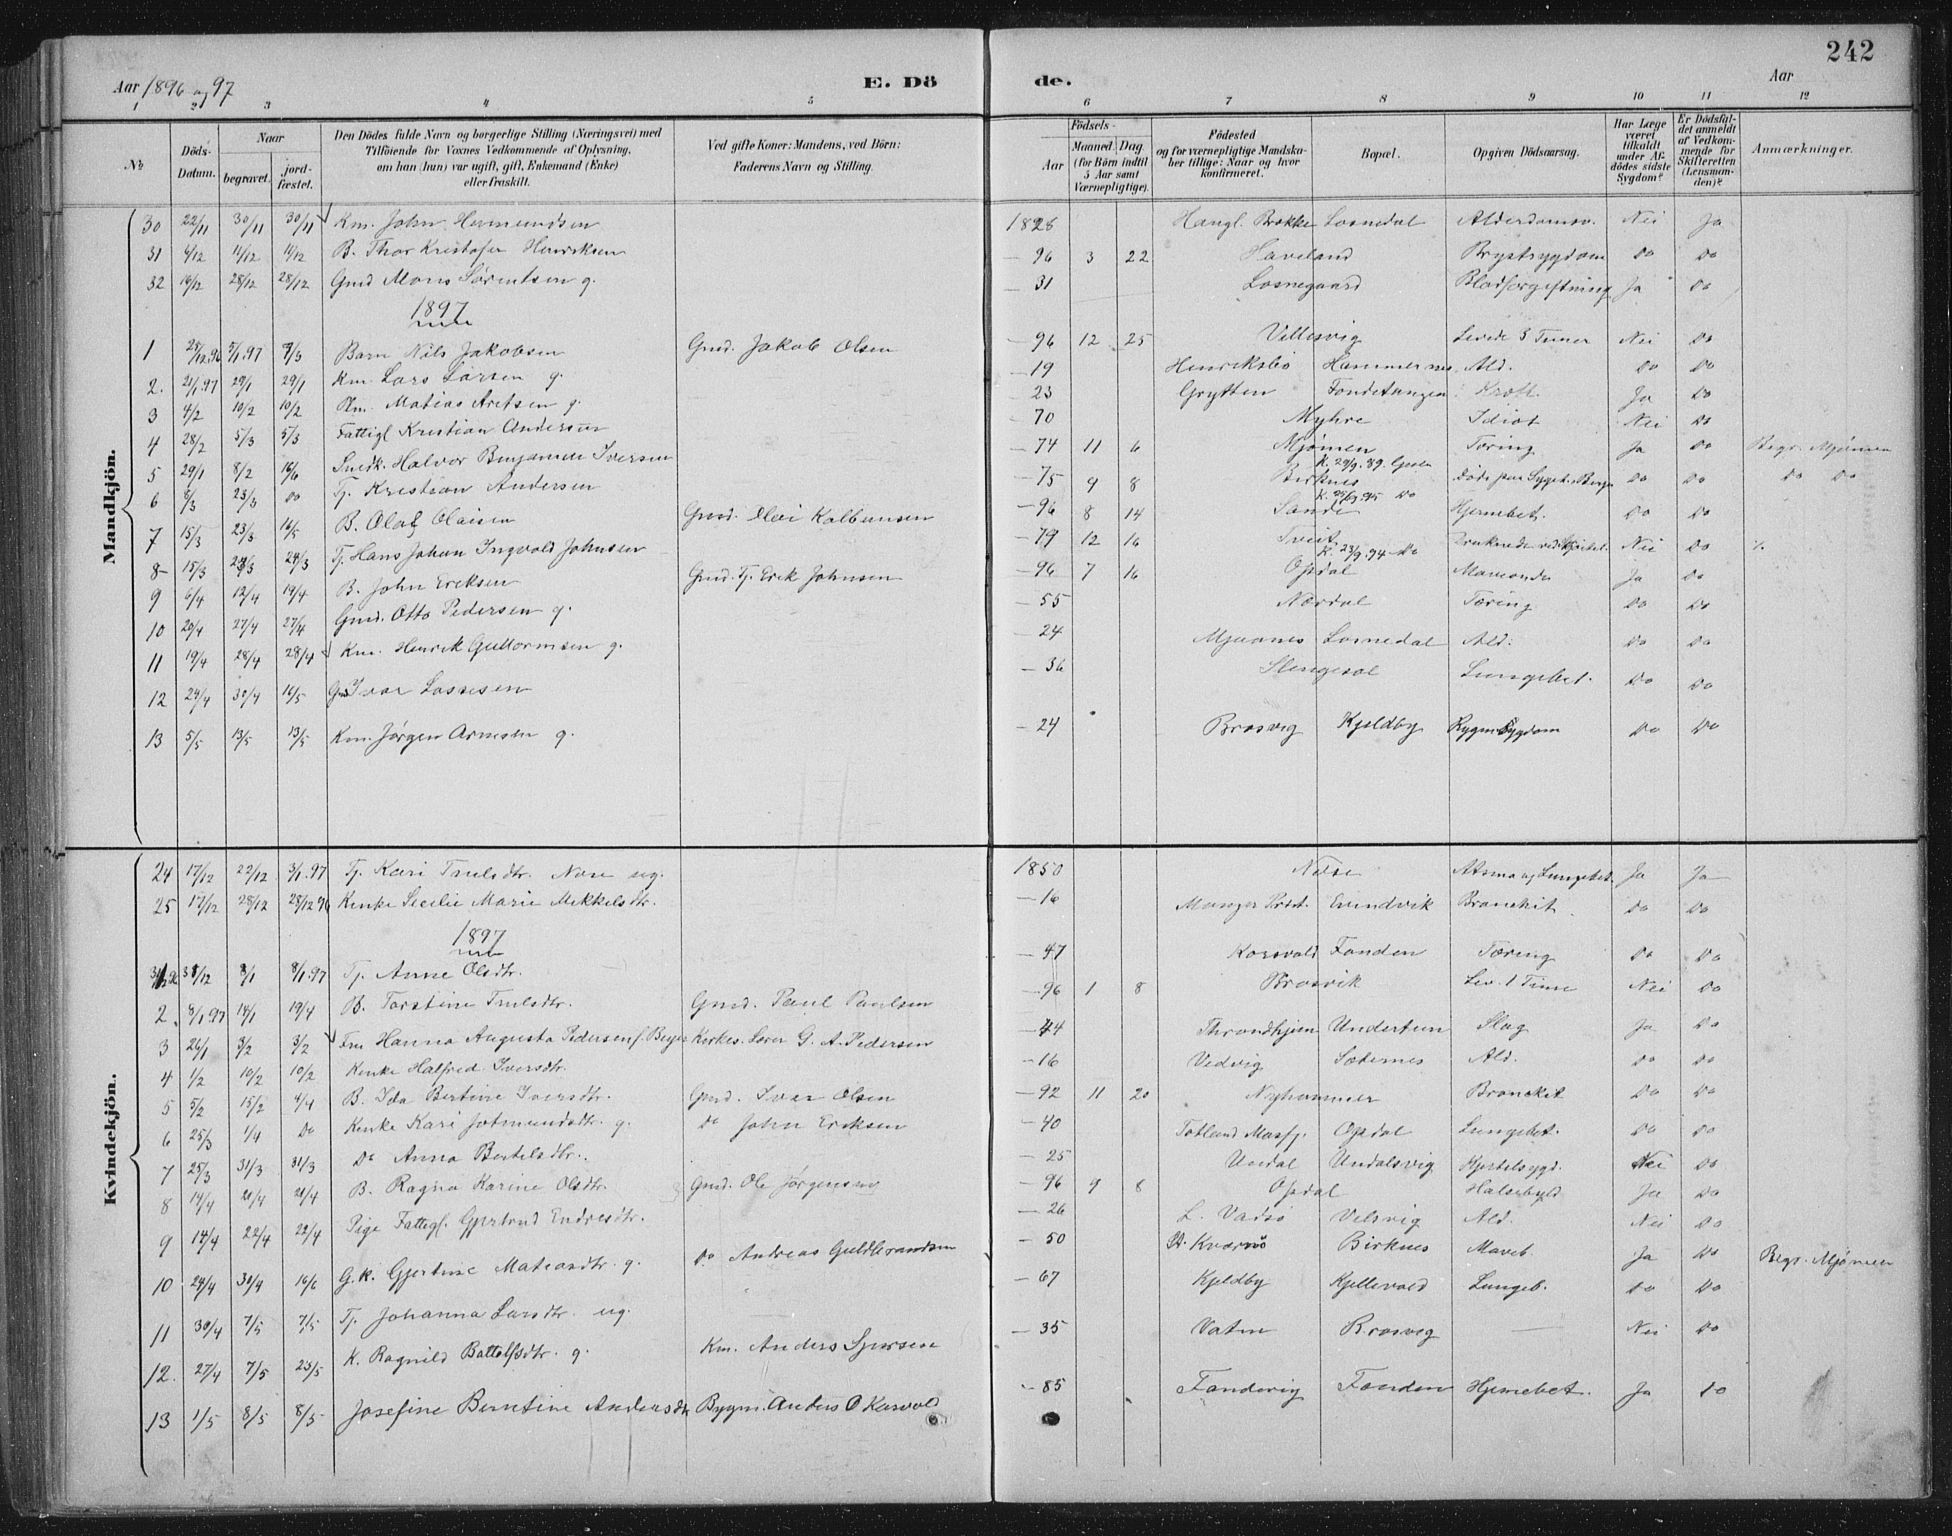 242
Aar 1896 og 97
E. Dö de.
Aar
1 2 3 4 5 6 7 8 9 10 11 12
№
Döds-Datum.
Naar
begravet.
jord-fæstet.
Den Dödes fulde Navn og borgerlige Stilling (Næringsvei) med
Tilföiende for Voxnes Vedkommende af Oplysning,
om han (hun) var ugift, gift, Enkemand (Enke)
eller fraskilt.
Ved gifte Koner: Mandens, ved Börn:
Faderens Navn og Stilling.
Födsels-
Aar
Maaned. Dag.
(for Börn indtil
5 Aar samt
Værnepligtige).
Födested
og for værnepligtige Mandska-
ber tillige: Naar og hvor
konfirmeret.
Bopæl.
Opgiven Dödsaarsag.
Har Læge
været
tilkaldt
under Af-
dödes sidste
Sygdom?
Er Dödsfal-
det anmeldt
af Vedkom-
mende for
Skifteretten
(Lensman-
den)?
Anmærkninger.
Mandkjön.
30 22/11 30/11 30/11 Km. John Hermundsen 1826 Hougl. Brekke Losnedal Alderdomssv. Nei Ja
31 4/12 11/12 11/12 B. Thor Kristofer Henriksen – 96 3 22 Haveland Brystsygdom Do Do
32 19/12 28/12 28/12 Gmd Mons Sørentsen g. – 31 Losnegaard Blodforgiftning Ja Do
1897
1 25/12.96 5/1.97 Barn Nils Jakobsen Gmd. Jakob Olsen – 96 12 25 Villesvig Levede 3 Timer Nei Do
2. 21/1.97 29/1 29/1 Km. Lars Larsen g. – 19 Henriksbø Hammersnes Ald. Do Do
3 4/2 10/2 10/2 Matias Aretsen g. – 23 Grytten Fondetangen Kræft Ja Do
4 28/2 5/3 5/3 Fattigl Kristian Andersen – 70 Myhre Idiot Nei Do
5 29/1 8/2 16/6 Snedk. Halvor Benjamin Iversen – 74 11 6 Mjømen Tæring Ja Do Begr. Mjømen
K. 29/9.89.
6 8/3 23/3 Do Tj. Kristian Andersen – 75 9 8 Birknes Døde paa Syget. i Bergen Do Do Do Do
Do
7 15/3 23/3 16/5 B. Olaf Olaisen Gmd. Olai Kolbensen – 96 8 14 Sande Hjernebet. Do Do
8 15/3 24/3 24/3 Tj. Hans Johan Ingvald Johnsen – 79 12 16 Tveit Nei Do
K. 23/9.94 Do
9 6/4 12/4 19/4 B. John Eriksen Gmd. Tj. Erik Johnsen – 96 7 16 Opdal Maveonde Ja Do
10 20/4 27/4 27/4 Gmd. Otto Pedersen g. – 55 Nordal Tæring Do Do
11 19/4 28/4 28/4 Km. Henrik Guttormsen g. – 24 Mjaanes Losnedal Ald. Do Do
12 24/4 30/4 16/5 Gmd Ivar Lassesen – 36 Stengesol Lungebet. Do Do
13 5/5 13/5 13/5 Km. Jørgen Arnesen g. – 24 Brosvig Kjeldby Rygmsygdom Do Do
Kvindekjön.
24 17/12 22/12 3/1.97 Tj. Kari Paulsdtr. Nose ug. 1850 Nose Astma og Lungebet. Ja Ja
25 17/12 28/12 28/12 96 Kenke Secilie Marie Mikkelsdtr. – 16 Manger Prst. Evindvik Bronchit Do Do
1897
8/1 8/1.97 Tj. Anne Olsdtr. – 47 Korsvold Fonden Tæring Do Do
2. 8/1.97 18/1 19/4 B. Torstine Paulsdtr. Gmd. Paul Paulsen – 96 1 8 Brosvik Lev. 1 Time Nei Do
3 26/1 3/2 3/2 Fru Hanna Augusta Pedersen f. Beyer Kirkes. Lærer G. A. Pedersen – 44 Throndhjem Undertun Slag Ja Do
4 1/2 10/2 10/2 Kenke Halfred Iversdtr. – 16 Vedvig Sæternes Ald. Do Do
5 5/2 15/2 4/4 B. Ida Bertine Iversdtr. Gmd. Iver Olsen – 92 11 20 Nyhammer Bronckit Do Do
6 25/3 1/4 Do Kenke Kari Jotmundsdtr. g. Do John Eriksen – 40 Totland Masfj. Opdal Lungebet. Do Do
7 25/3 31/3 31/3 Do Anna Bertelsdtr. – 25 Undal Undalsvig Kjertelsygd. Nei Do
8 14/4 20/4 20/4 B. Ragna Karine Olsdtr. Gmd. Ole Jørgensen – 96 9 8 Opdal Halsebyld Ja Do
9 14/4 22/4 22/4 Pige Fattigl. Gjertrud Endresdtr. – 26 L. Vadsø Velsvig Ald. Nei Do
10 24/4 30/4 16/6 G.k. Gjertine Matiasdtr. g. Do Andreas Guldbrandsen – 50 Kværnø Birknes Maveb. Ja Do Begr. Mjømen
11 30/4 7/5 7/5 Tj. Johanna Larsdtr. ug. – 67 Kjeldby Kjellevold Lungeb. Do Do
12. 27/4 7/5 23/5 K. Ragnild Battolfsdtr. g. Km. Anders Sjursen – 35 Vaten Brosvig – Nei Do
13 1/5 8/5 8/5 Josefine Berntine Andersdtr Bygm. Anders O Korsvold – 85 Fondevig Fonden Hjernebet. Ja Do